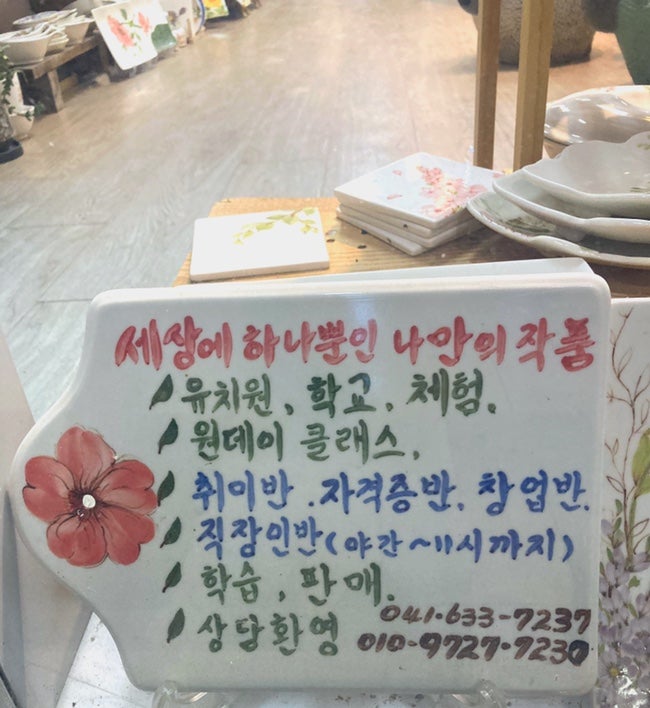 세상에 하나뿐인 나만의 작품
유치원, 학교, 체험.
원데이 클래스,
취미반 . 자격증반. 창업반.
직장인반(야간~11시까지)
학습, 판매.
상담환영
041·633-7237
010-9727·7230